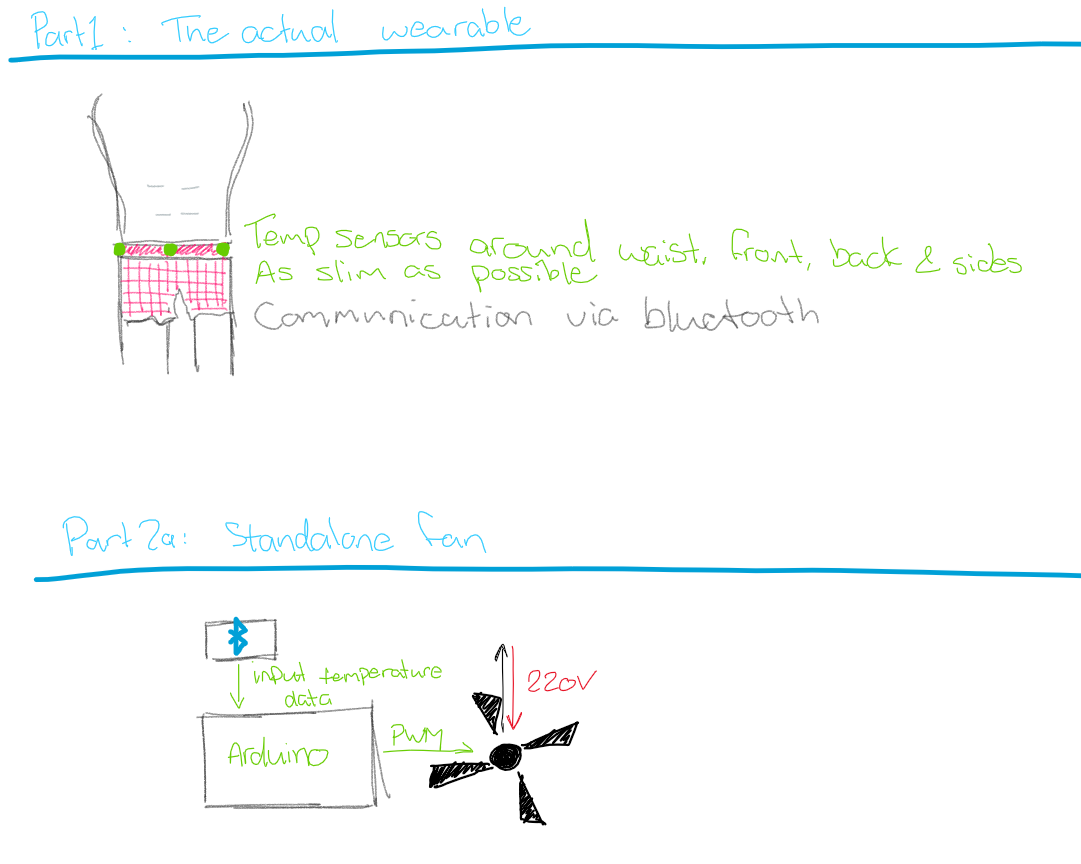 Part1: The actual wearable
Temp sensors around waist, front, back & sides
As slim as possible
Communication via bluetooth
Part 2a: Standalone fan
input temperature
data
220V
PWM
Arduino